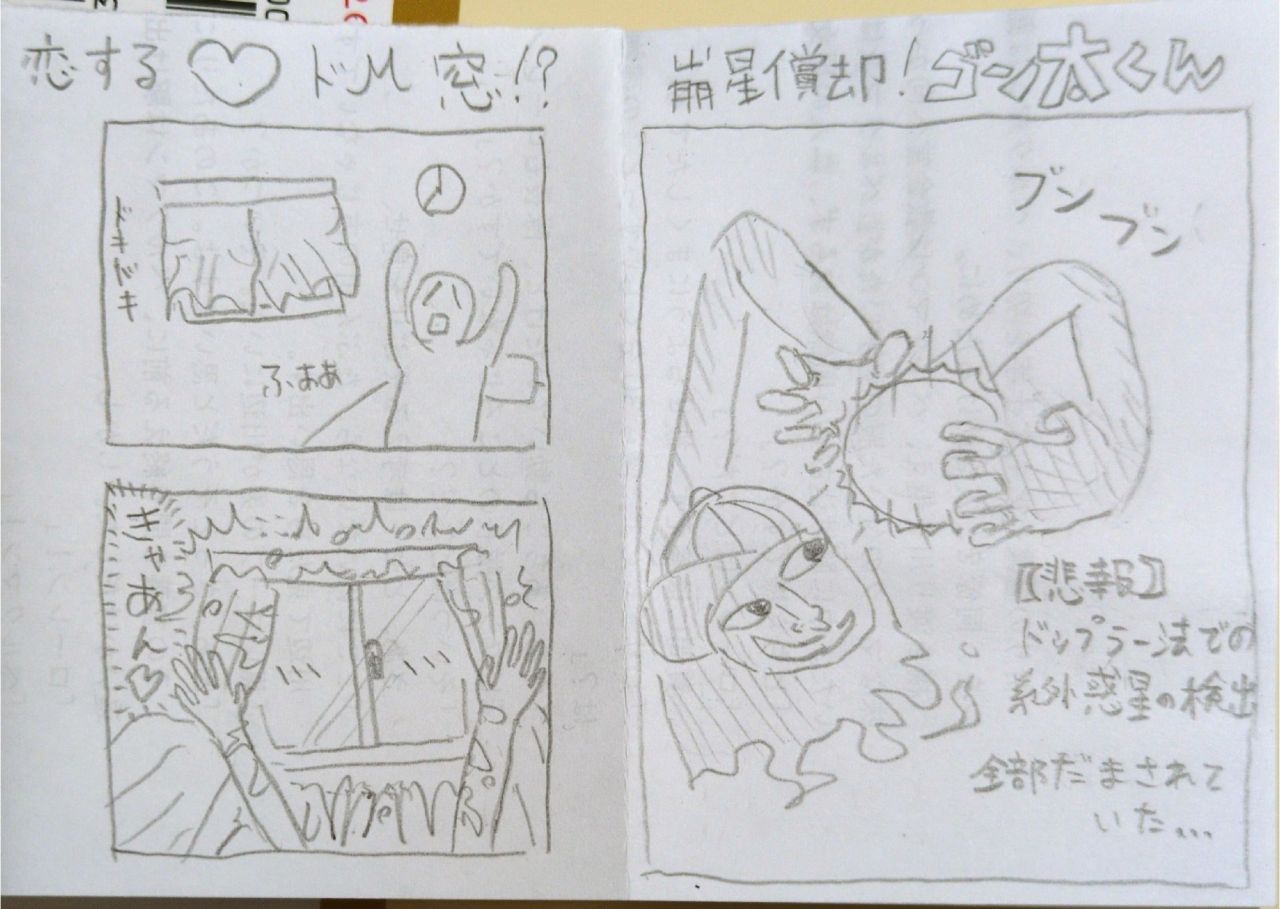 恋する♡ドM窓!?
ドキドキ
ふぁぁ
きゃあん♡
崩星償却!ゴン太くん
ブン
ブン
【悲報】
ドップラー法での
系外惑星の検出
全部だまされて
いた...